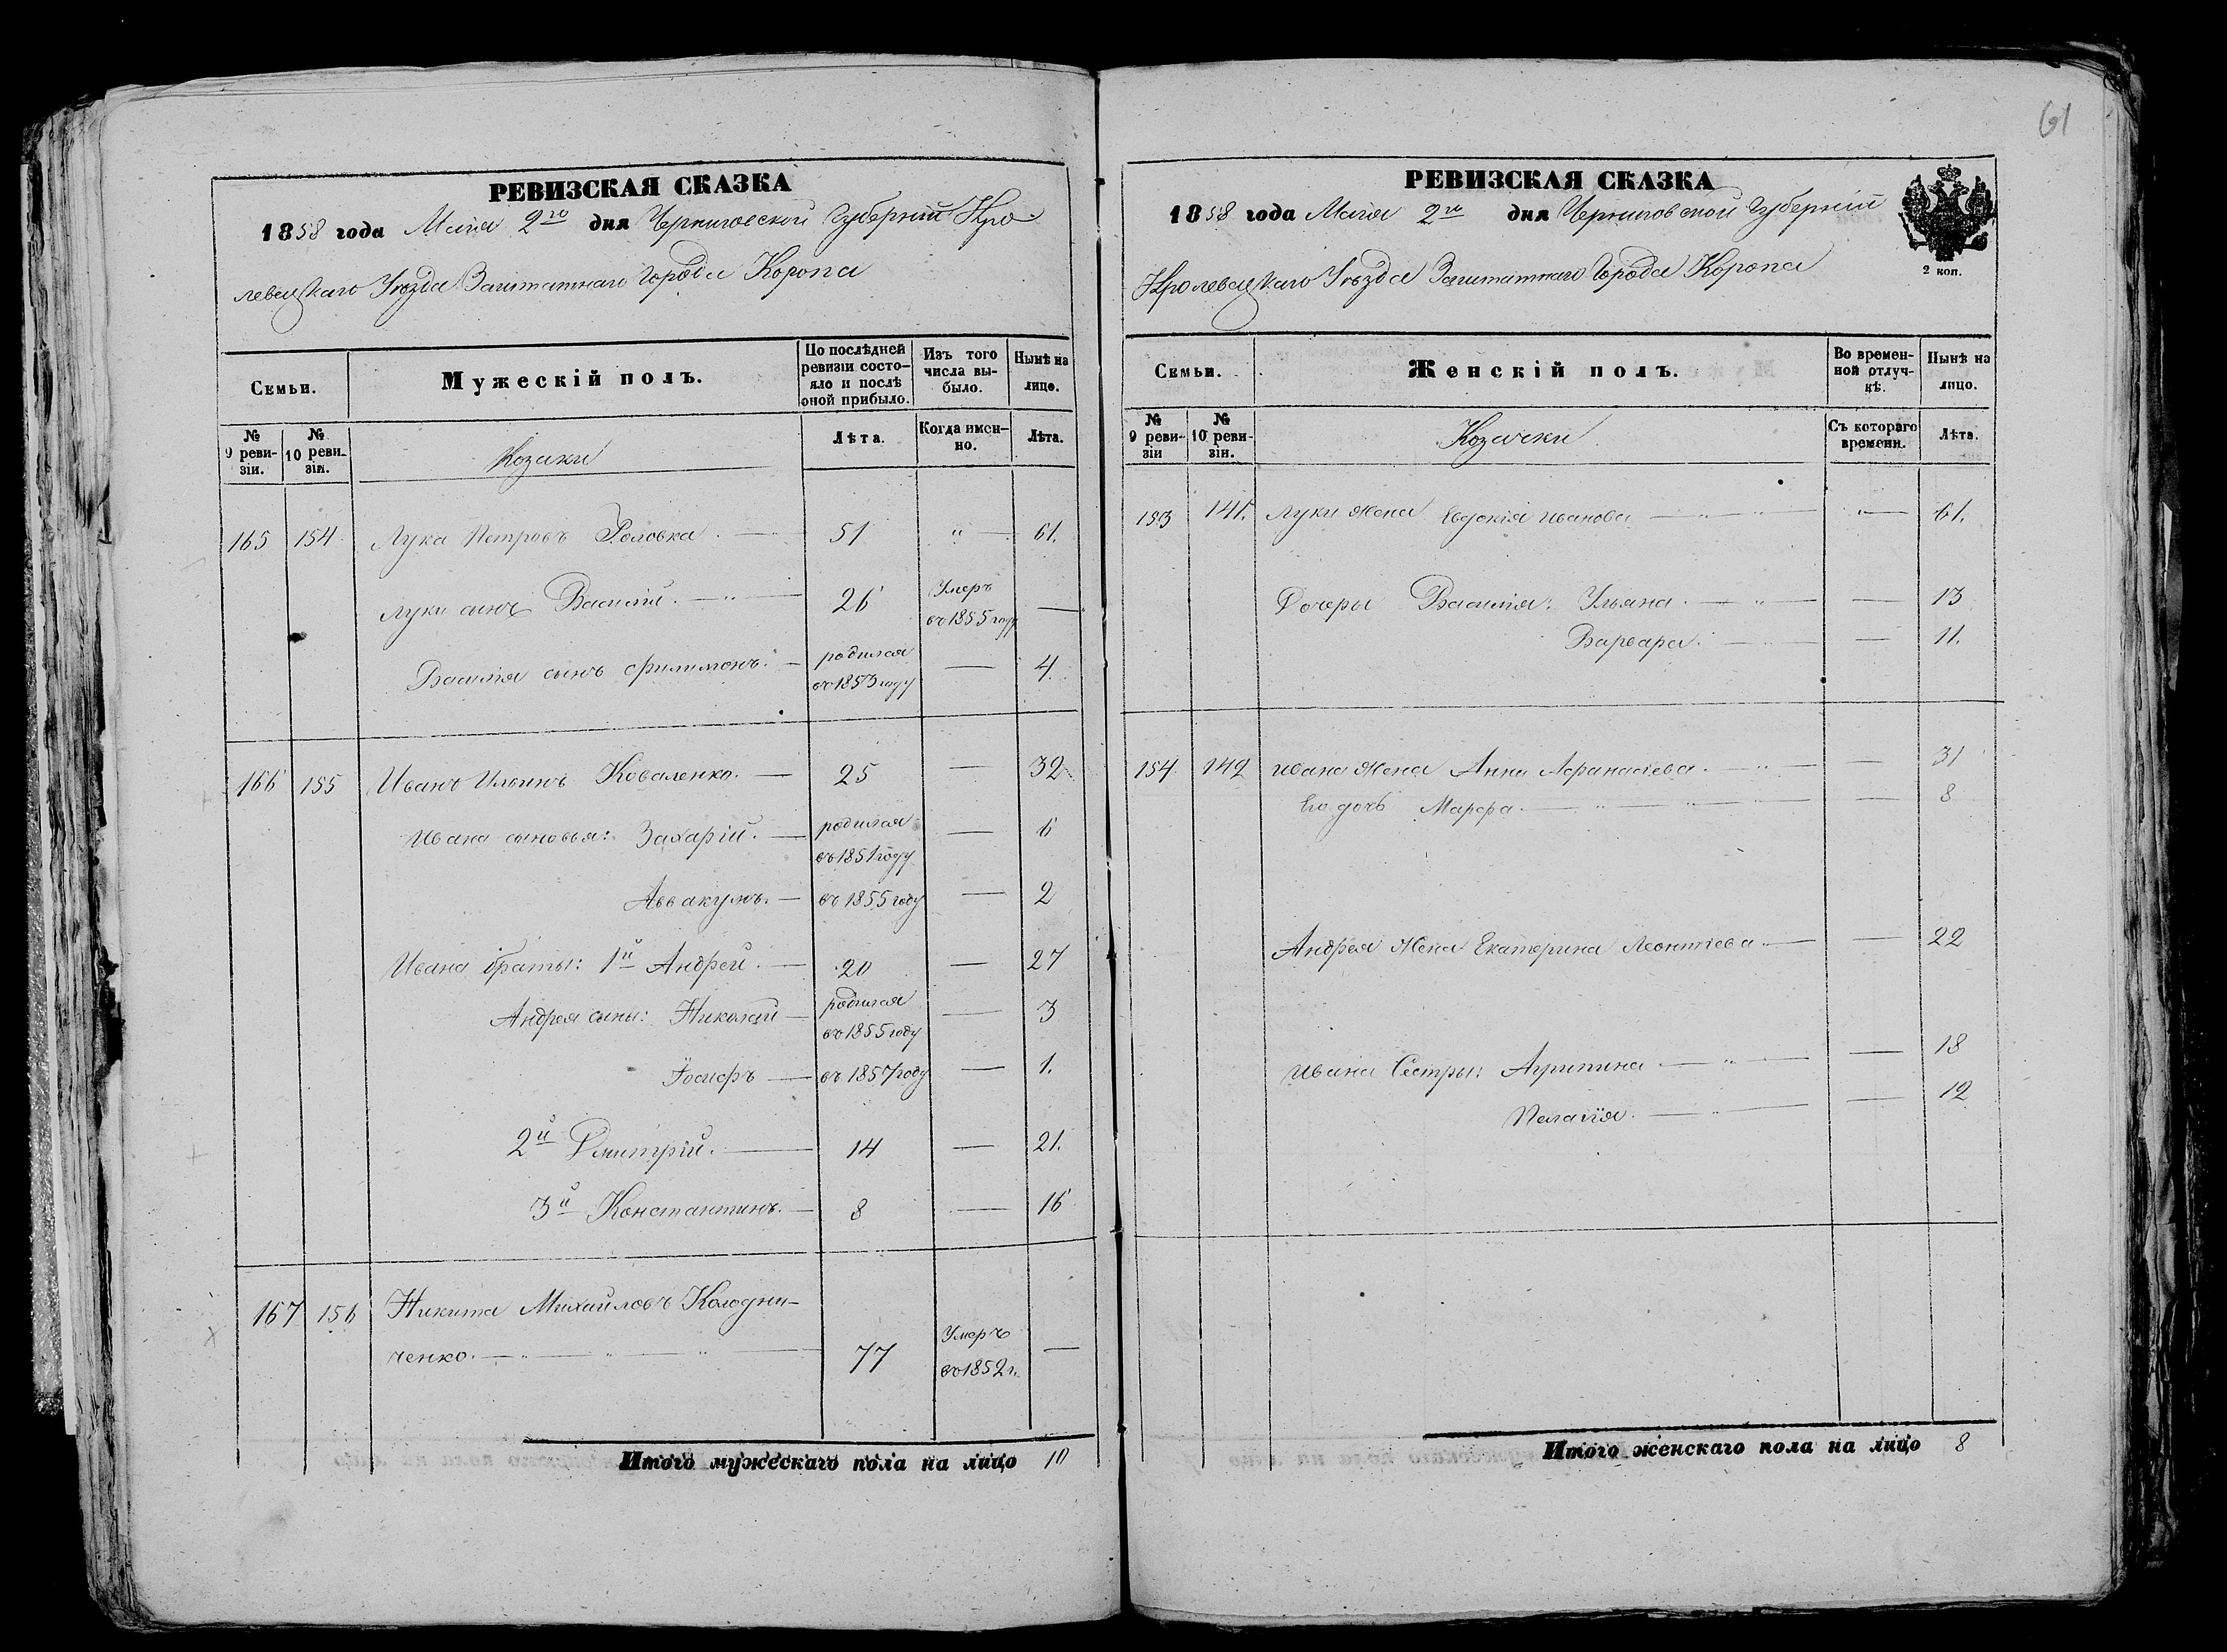 61
РЕВИЗСКАЯ СКАЗКА
1858 года Маія 2го дня Черниговской Губерніи Кро-
левецкаго Уѣзда Заштатнаго Города Коропа
Семьи.
Мужескій полъ.
По послѣдней ревизіи состо-
яло и послѣ оной прибыло.
Изъ того числа вы-
было.
Нынѣ на лицо.
№ 9 реви-
зіи.
№ 10 реви-
зіи.
Козаки
Лѣта.
Когда имен-
но.
Лѣта.
165 154 Лука Петровъ Головка. — 51 " — 61.
Луки сынъ Василій. — " — 26 Умеръ
въ 1855 году —
Василія сынъ Филимонъ. — родился
въ 1853 году — 4.
166 155 Иванъ Ильинъ Коваленко. — 25 — 32.
Ивана сыновья: Захарій. — родился
въ 1851 году — 6
Аввакумъ. — въ 1855 году — 2
Ивана браты: 1й Андрей. — 20 — 27
Андрея сыны: Николай — родился
въ 1855 году — 3
Іосифъ — въ 1857 году — 1.
2й Дмитрій. — 14 — 21.
3й Константинъ. — 8 — 16
167 156 Никита Михайловъ Колодни-
ченко. — " — " — " — 77 Умеръ
въ 1852 г. —
Итого мужескаго пола на лицо 10
РЕВИЗСКАЯ СКАЗКА
1858 года Маія 2го дня Черниговской Губерніи
Кролевецкаго Уѣзда Заштатнаго Города Коропа
2 коп.
Семьи.
Женскій полъ.
Во времен-
ной отлуч-
кѣ.
Нынѣ на лицо.
№ 9 реви-
зіи
№ 10 реви-
зіи.
Козачки
Съ котораго времени.
Лѣта.
153 141. Луки жена Евдокія Иванова — " — " — 61.
Дочеры Василія: Ульяна. — " — — 13
Варвара. — — 11.
154 142 Ивана жена Анна Афанасіева. — " — — 31
Его дочь Марфа. — " — " — — 8
Андрея жена Екатерина Леонтіева. — — 22
Ивана Сестры: Агрипина — " — — 18
Пелагія. — " — — 12
Итого женскаго пола на лицо 8